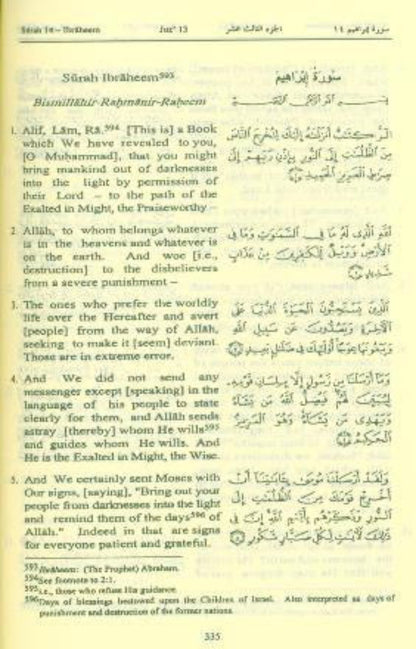 Sūrah 14 – Ibrāheem Juz' 13 الجزء الثالث عشر سورة إبراهيم ١٤
Sūrah Ibrāheem593
سورة إبراهيم
Bismillāhir-Raḥmānir-Raḥeem
بسم الله الرحمن الرحيم
1. Alif, Lām, Rā.594 [This is] a Book
which We have revealed to you,
[O Muḥammad], that you might
bring mankind out of darknesses
into the light by permission of
their Lord – to the path of the
Exalted in Might, the Praiseworthy –
الٓر كِتَٰبٌ أَنزَلْنَٰهُ إِلَيْكَ لِتُخْرِجَ ٱلنَّاسَ
مِنَ ٱلظُّلُمَٰتِ إِلَى ٱلنُّورِ بِإِذْنِ رَبِّهِمْ إِلَىٰ
صِرَٰطِ ٱلْعَزِيزِ ٱلْحَمِيدِ ١
2. Allāh, to whom belongs whatever
is in the heavens and whatever is
on the earth. And woe [i.e.,
destruction] to the disbelievers
from a severe punishment –
ٱللَّهِ ٱلَّذِى لَهُۥ مَا فِى ٱلسَّمَٰوَٰتِ وَمَا فِى
ٱلْأَرْضِ وَوَيْلٌ لِّلْكَٰفِرِينَ مِنْ عَذَابٍ
شَدِيدٍ ٢
3. The ones who prefer the worldly
life over the Hereafter and avert
[people] from the way of Allāh,
seeking to make it [seem] deviant.
Those are in extreme error.
ٱلَّذِينَ يَسْتَحِبُّونَ ٱلْحَيَوٰةَ ٱلدُّنْيَا عَلَى
ٱلْءَاخِرَةِ وَيَصُدُّونَ عَن سَبِيلِ ٱللَّهِ
وَيَبْغُونَهَا عِوَجًا أُو۟لَٰٓئِكَ فِى ضَلَٰلٍۭ بَعِيدٍ ٣
4. And We did not send any
messenger except [speaking] in the
language of his people to state
clearly for them, and Allāh sends
astray [thereby] whom He wills595
and guides whom He wills. And
He is the Exalted in Might, the Wise.
وَمَآ أَرْسَلْنَا مِن رَّسُولٍ إِلَّا بِلِسَانِ قَوْمِهِۦ
لِيُبَيِّنَ لَهُمْ فَيُضِلُّ ٱللَّهُ مَن يَشَآءُ
وَيَهْدِى مَن يَشَآءُ وَهُوَ ٱلْعَزِيزُ
ٱلْحَكِيمُ ٤
5. And We certainly sent Moses with
Our signs, [saying], "Bring out your
people from darknesses into the light
and remind them of the days596 of
Allāh." Indeed in that are signs
for everyone patient and grateful.
وَلَقَدْ أَرْسَلْنَا مُوسَىٰ بِـَٔايَٰتِنَآ أَنْ
أَخْرِجْ قَوْمَكَ مِنَ ٱلظُّلُمَٰتِ إِلَى
ٱلنُّورِ وَذَكِّرْهُم بِأَيَّىٰمِ ٱللَّهِ إِنَّ فِى
ذَٰلِكَ لَءَايَٰتٍ لِّكُلِّ صَبَّارٍ شَكُورٍ ٥
593Ibrāheem: (The Prophet) Abraham.
594See footnote to 2:1.
595i.e., those who refuse His guidance.
596Days of blessings bestowed upon the Children of Israel. Also interpreted as days of
punishment and destruction of the former nations.
335